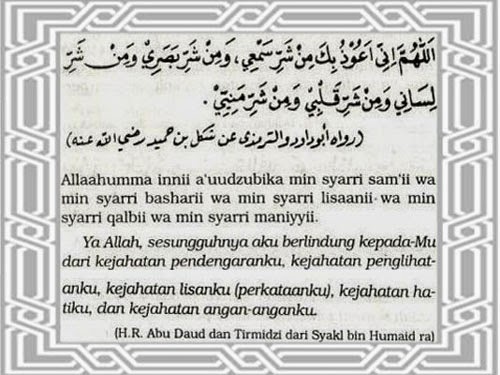 اَللّٰهُمَّ اِنِّى اَعُوْذُ بِكَ مِنْ شَرِّ سَمْعِيْ، وَمِنْ شَرِّ بَصَرِيْ وَمِنْ شَرِّ
لِسَانِيْ وَمِنْ شَرِّ قَلْبِيْ وَمِنْ شَرِّ مَنِيِّيْ.
(رواه ابوداود والترمذى عن شكل بن حميد رضي الله عنه)
Allaahumma innii a'uudzubika min syarri sam'ii wa
min syarri basharii wa min syarri lisaanii wa min
syarri qalbii wa min syarri maniyyii.
Ya Allah, sesungguhnya aku berlindung kepada-Mu
dari kejahatan pendengaranku, kejahatan penglihat-
anku, kejahatan lisanku (perkataanku), kejahatan ha-
tiku, dan kejahatan angan-anganku.
(H.R. Abu Daud dan Tirmidzi dari Syakl bin Humaid ra)